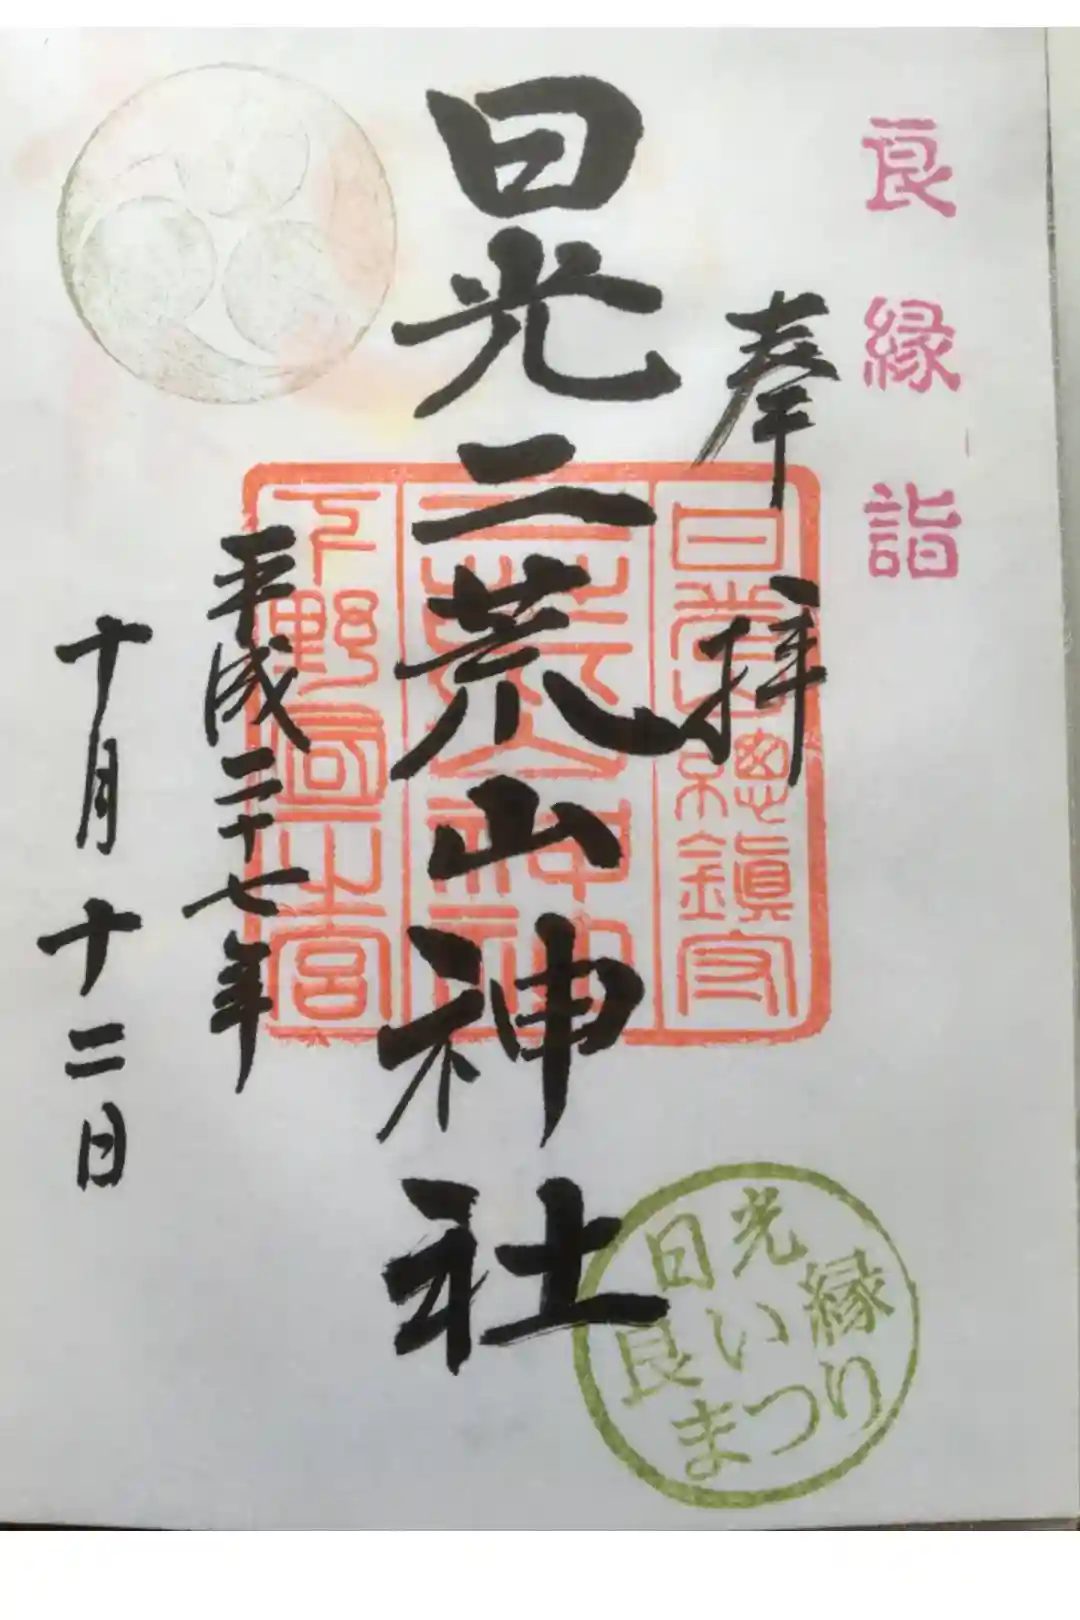 良縁詣
奉拝
日光二荒山神社
平成二十七年
十月十二日
日光総鎮守
二荒山神社
下野国一之宮
日光
良い縁
まつり